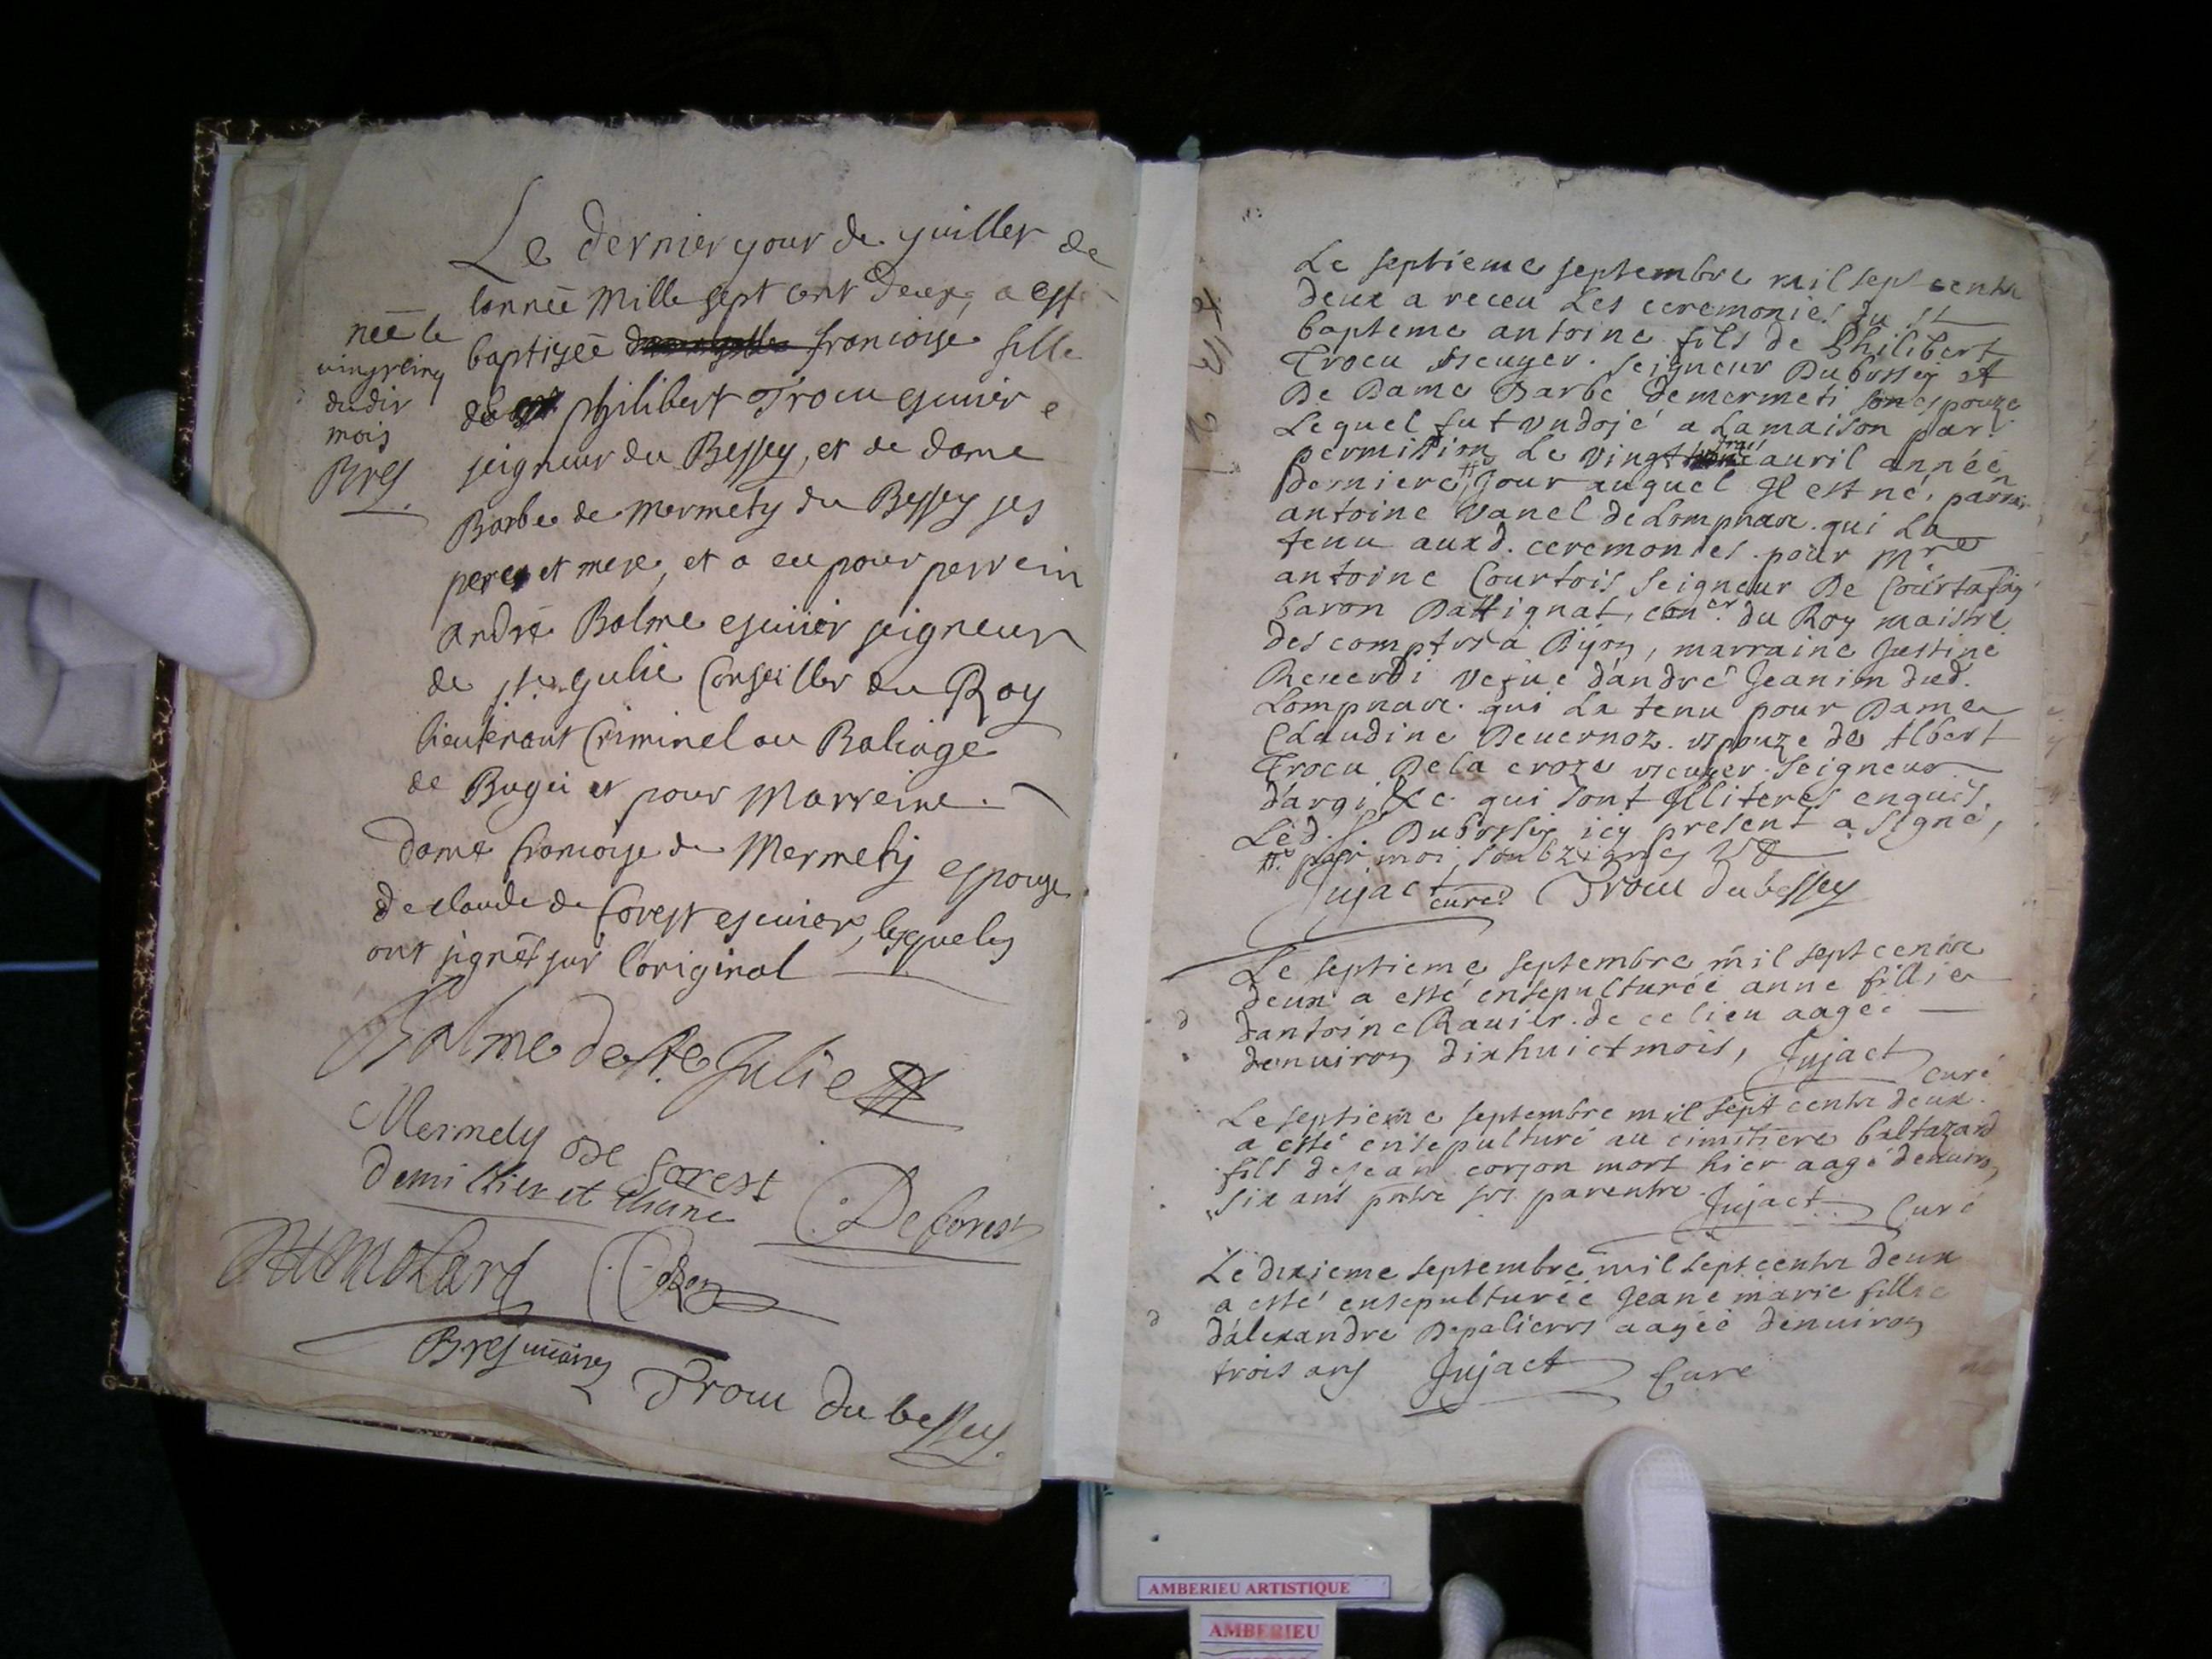 Le dernier jour de juillet de
lannée Mille sept cent deux, a esté
baptisée francoise fille
de philibert Trocu escuier
seigneur du Bessey, et de dame
Barbe de Mermety du Bessey ses
pere et mere, et a eu pour perrein
André Balme escuier seigneur
de ste Julie Conseiller du Roy
lieutenant Criminel au Baliage
de Bugei et pour Marreine
dame francoise de Mermety espouse
de claude de forest escuier, lesquels
ont signét sur l'original
née le
vingtcinq
dudit
mois
Bres
Balme de Ste Julie
Mermety de forest
De forest
Molard
Bres vicaire
Trocu du bessey
Le septieme septembre mil sept cents
deux a receu les ceremonies du st
bapteme antoine fils de Philibert
Trocu escuyer. seigneur Dubessey et
De Dame Barbe demermeti son espouze
Lequel fut undojé a la maison par
permission le vingt trois auril année
derniere # Jour auquel Il est né, parrain
antoine Vanel de Lompnare. qui La
tenu auxd. ceremonies pour Mre
antoine Courtois seigneur De
baron Dattignat, coner. du Roy maistre
des comptes a Dijon, marraine Justine
Reuerdi vefue d'andré Jeanin dud.
Lompnare. qui La tenu pour Dame
Claudine Deuernoz. espouze de Albert
Trocu De la croze escuyer seigneur
d'argi &c. qui sont Illiterés enquis.
Led. Sr. Dubessey icy present a signé,
#. par moi soubzigné
Jujact curé Trocu du bessey
Le septieme septembre mil sept cents
deux a esté ensepulturée anne fillie
d'antoine Rauier. de ce lieu aagée
denuiron dixhuict mois, Jujact curé
Le septieme septembre mil sept cents deux.
a esté ensepulturé au cimitiere baltazard
fils de Jean corjon mort hier aagé denuiron
six ans pntre ses parentre. Jujact Curé
Le dixieme septembre mil sept cents deux
a esté ensepulturée Jeane marie fillie
d'alexandre Depalierrs aagée denuiron
trois ans Jujact Curé
AMBERIEU ARTISTIQUE
AMBERIEU